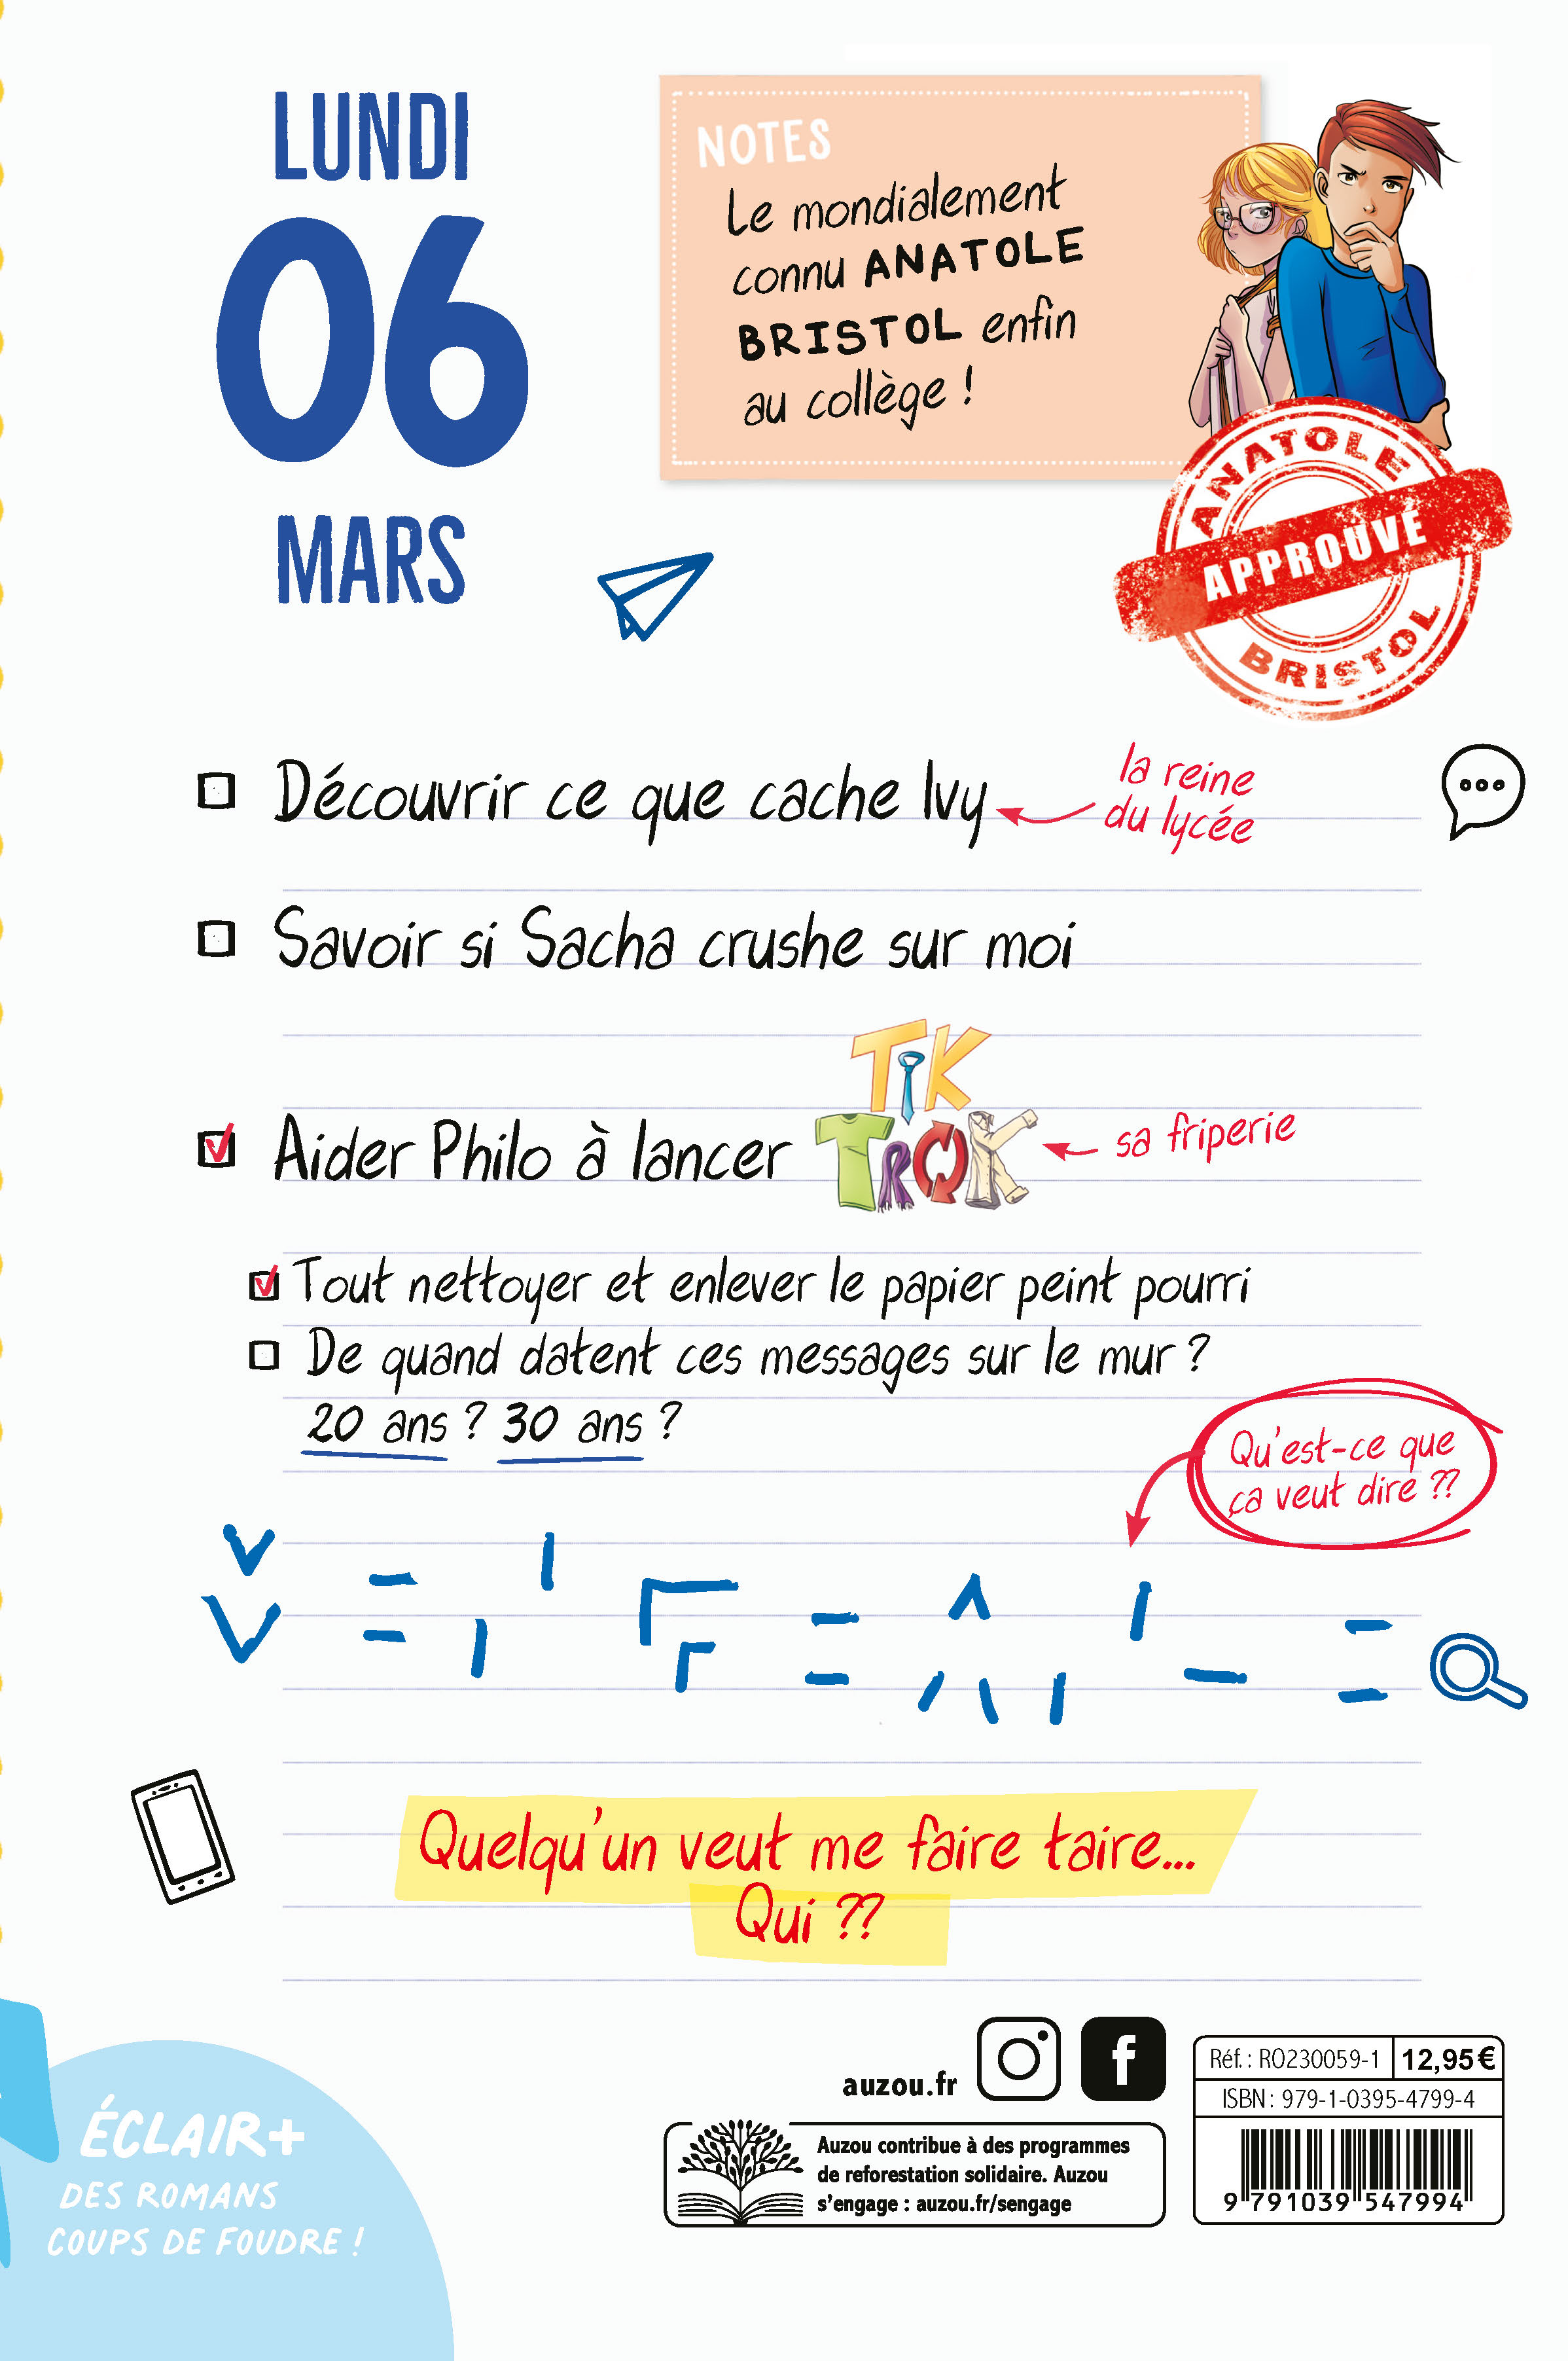 LUNDI
06
MARS
NOTES
Le mondialement
connu ANATOLE
BRISTOL enfin
au collège !
ANATOLE
APPROUVÉ
BRISTOL
Découvrir ce que cache Ivy
la reine
du lycée
Savoir si Sacha crushe sur moi
Aider Philo à lancer
TiK
TROK
sa friperie
Tout nettoyer et enlever le papier peint pourri
De quand datent ces messages sur le mur ?
20 ans ? 30 ans ?
Qu'est-ce que
ça veut dire ??
Quelqu'un veut me faire taire...
Qui ??
ÉCLAIR+
DES ROMANS
COUPS DE FOUDRE !
auzou.fr
f
Auzou contribue à des programmes
de reforestation solidaire. Auzou
s'engage : auzou.fr/sengage
Réf. : RO230059-1
12,95€
ISBN : 979-1-0395-4799-4
9 791039 547994